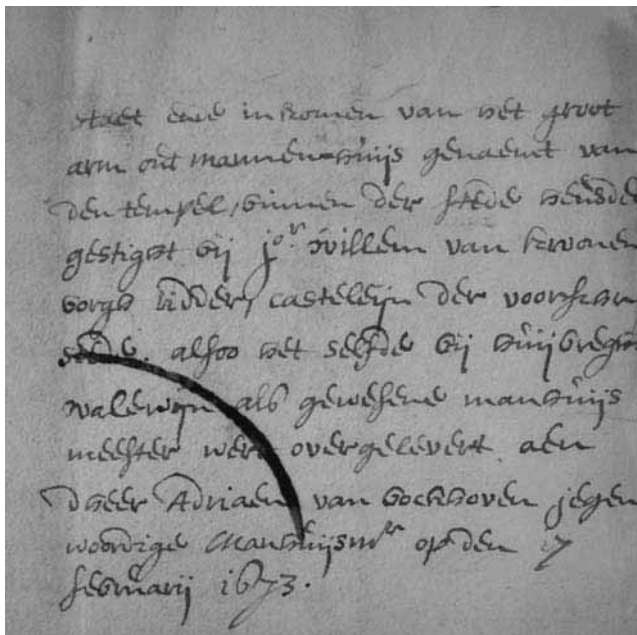 staet ende inkomen van het groot
arm out mannenhuijs genaemt van
den tempel, binnen der stede heusde
gestight bij jo.r Willem van kronen
borgh Ridder, casteleijn der voorschr
stede. alsoo het selfde bij huijbregh
walewijn als gewesene manhuijs
meester wert overgelevert aen
dheer Adriaen van bockhoven jegen
woordige Manhuijsm.r op den 17
februarij 1673.